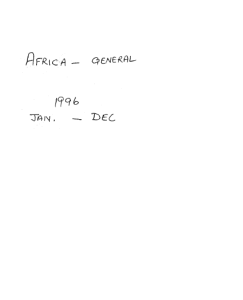 AFRICA – GENERAL
1996
JAN. – DEC